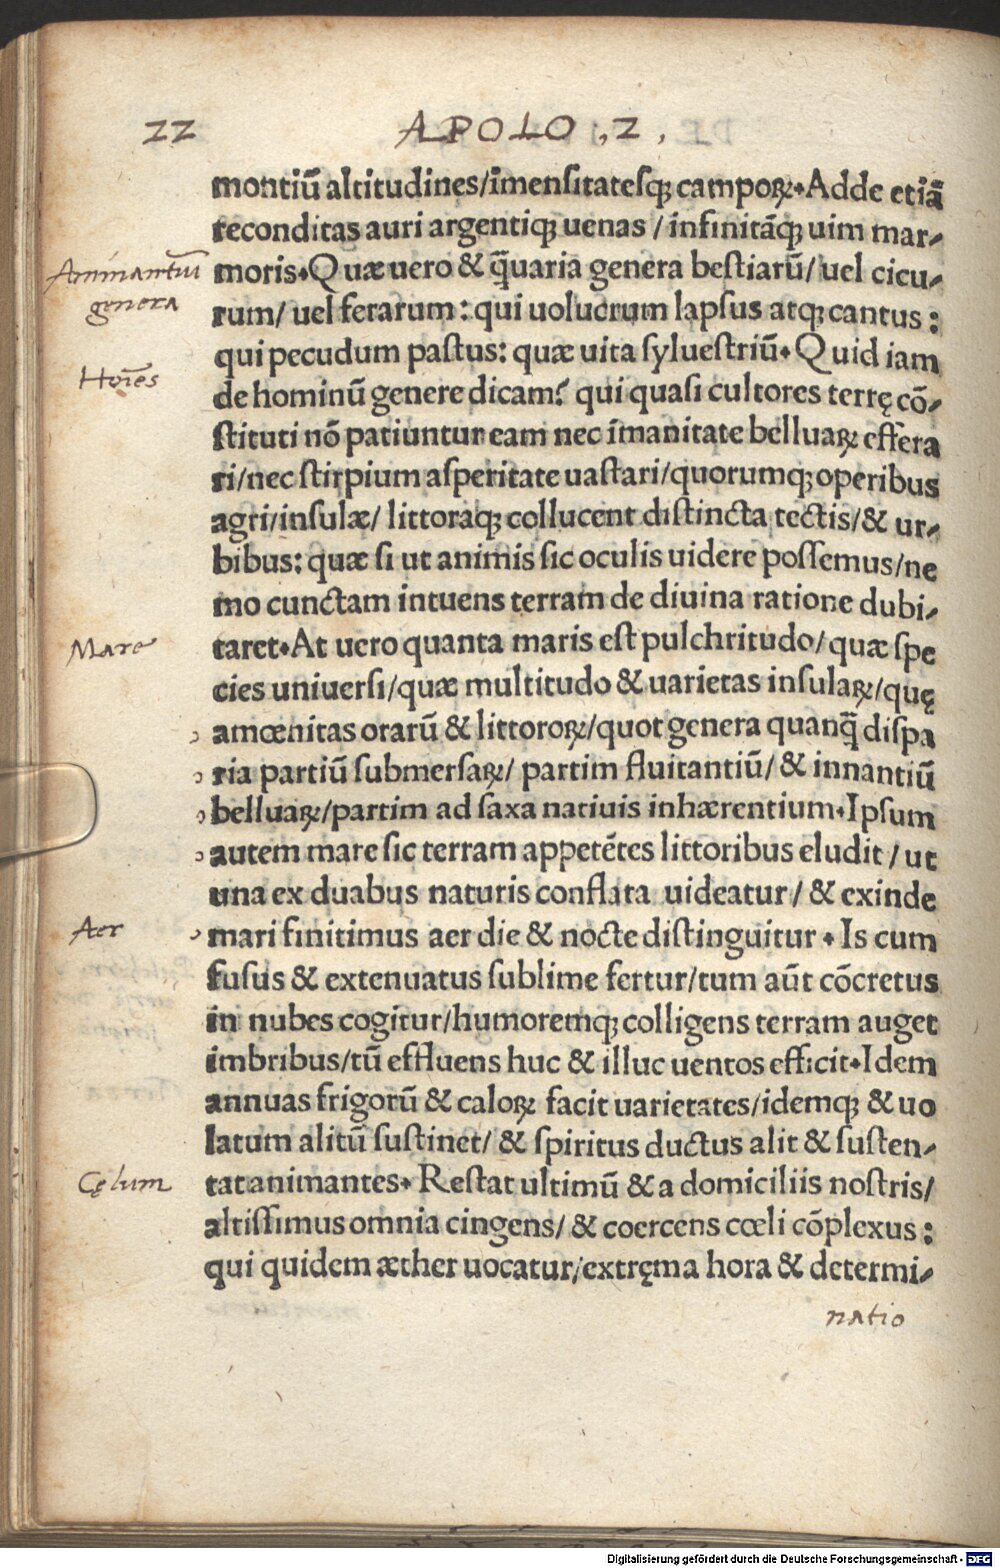 22 APOLO .2.
montiū altitudines/īmensitatesq; campoꝝ. Adde etiā
reconditas auri argentiq; uenas / infinitāq; uim mar-
Animantiū moris. Quæ uero & q̄̄uaria genera bestiarū/ uel cicu-
genera rum/ uel ferarum: qui uolucrum lapsus atq; cantus:
qui pecudum pastus: quæ uita syluestriū. Quid iam
Hoīes de hominū genere dicam? qui quasi cultores terrę cō-
stituti nō patiuntur eam nec īmanitate belluaꝝ effera
ri/nec stirpium asperitate uastari/quorumq; operibus
agri/insulæ/ littoraq; collucent distincta tectis/& ur-
bibus: quæ si ut animis sic oculis uidere possemus/ne
mo cunctam intuens terram de diuina ratione dubi-
Mare taret. At uero quanta maris est pulchritudo/quæ spe
cies uniuersi/quæ multitudo & uarietas insulaꝝ/quę
amœnitas orarū & littoroꝝ/quot genera quanq̄ dispa
ria partiū submersaꝝ/ partim fluitantiū/ & innantiū
belluaꝝ/partim ad saxa natiuis inhærentium. Ipsum
autem mare sic terram appetētes littoribus eludit / ut
una ex duabus naturis conflata uideatur/ & exinde
Aer mari finitimus aer die & nocte distinguitur. Is cum
fusus & extenuatus sublime fertur/tum aūt cōcretus
in nubes cogitur/humoremq; colligens terram auget
imbribus/tū effluens huc & illuc uentos efficit. Idem
annuas frigorū & caloꝝ facit uarietates/idemq; & uo
latum alitū sustinet/ & spiritus ductus alit & susten-
Cęlum tat animantes. Restat ultimū & a domiciliis nostris/
altissimus omnia cingens/ & coercens cœli cōplexus:
qui quidem æther uocatur/extręma hora & determi-
natio
Digitalisierung gefördert durch die Deutsche Forschungsgemeinschaft - DFG